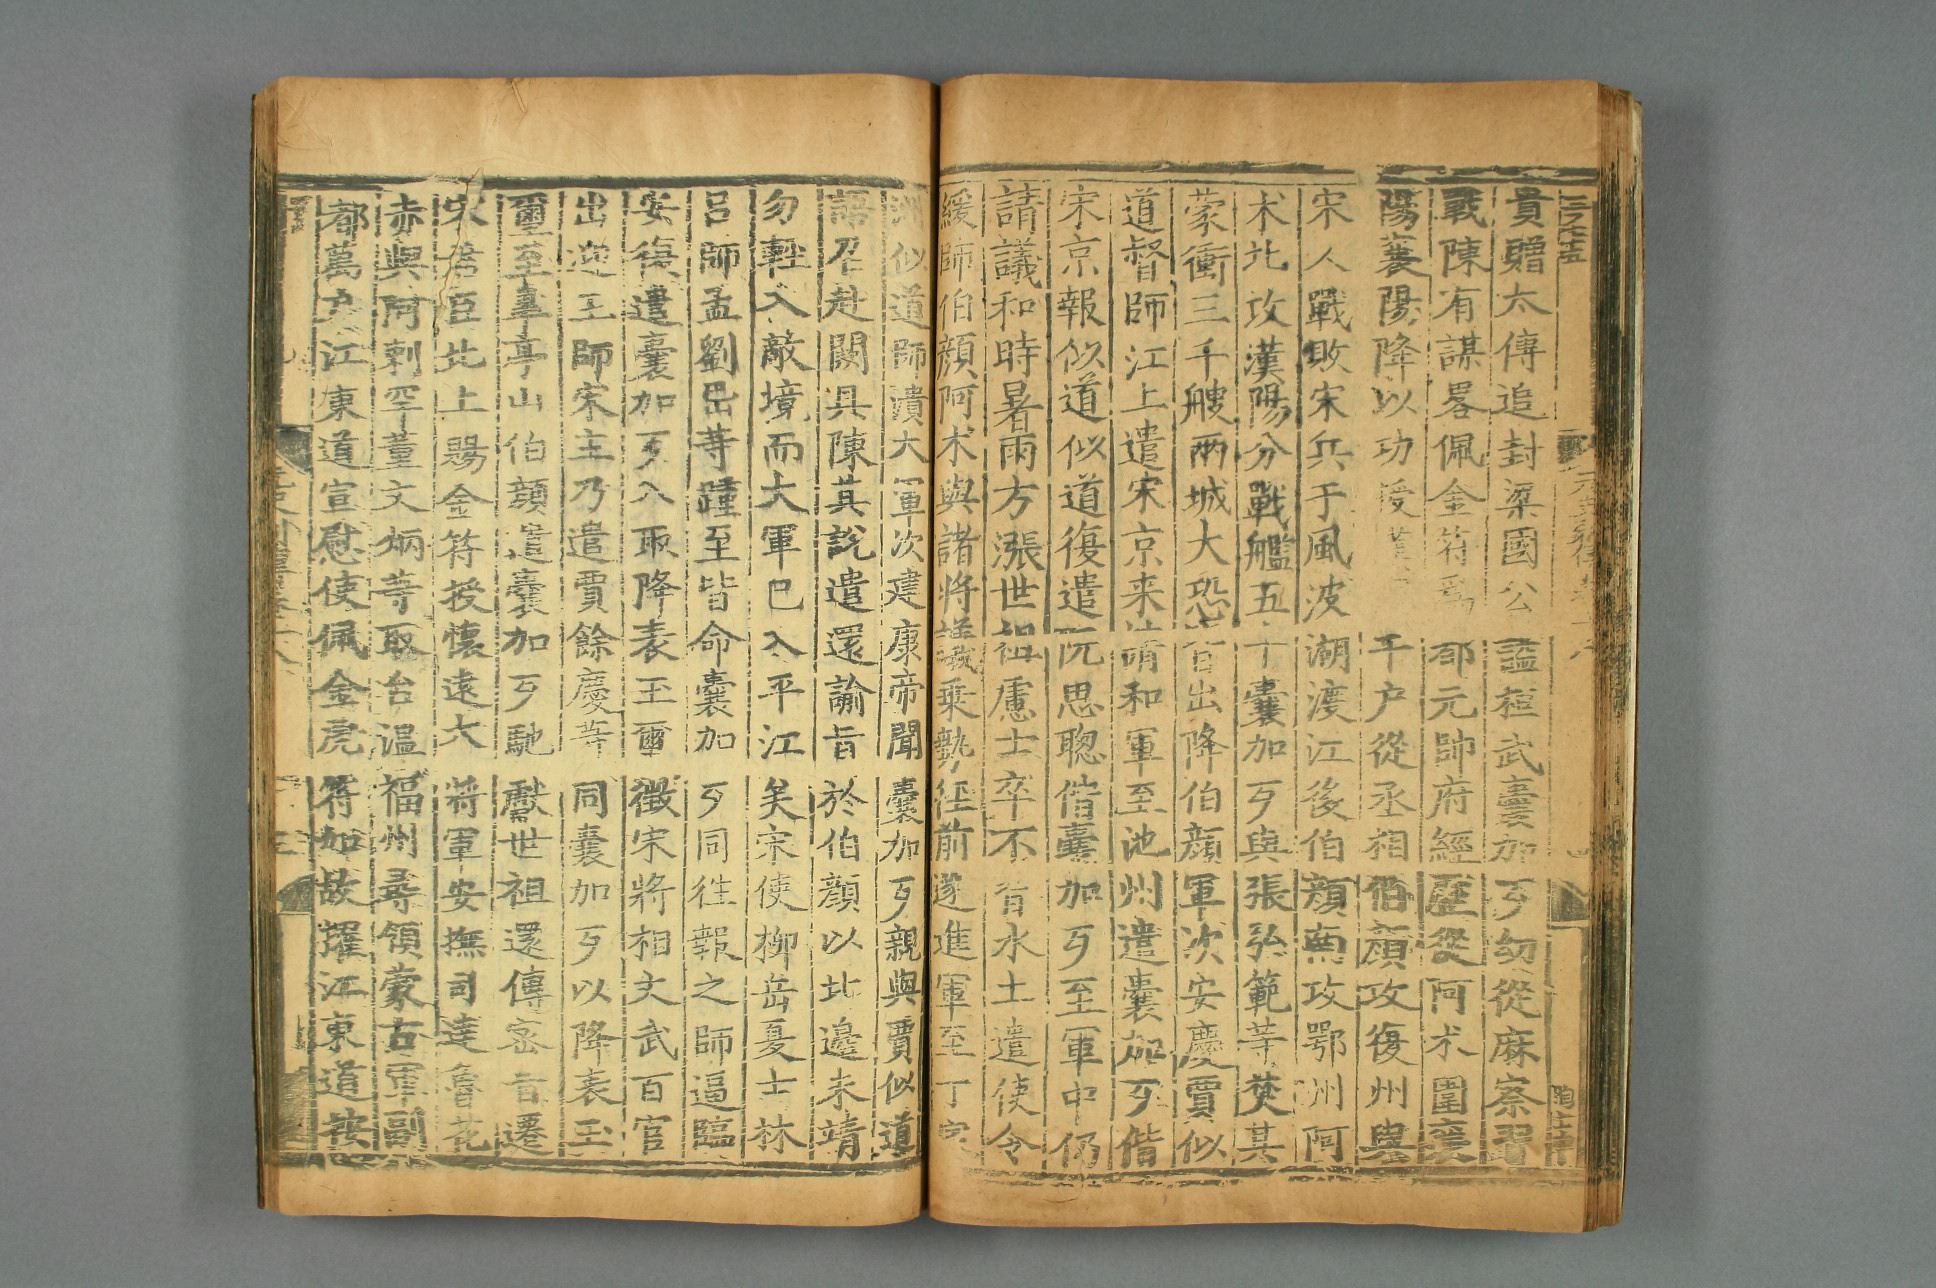 貴贈太傅追封梁國公謚桓武囊加歹幼從麻察習
戰陳有謀畧佩金符爲郍元帥府經歷從阿术圍襄
陽襄陽降以功授漢千户從丞相伯顔攻復州與
宋人戰敗宋兵于風波湖渡江後伯顔南攻鄂州阿
术北攻漢陽分戰艦五十囊加歹與張弘範等焚其
蒙衝三千艘兩城大恐皆出降伯顔軍次安慶賈似
道督師江上遣宋京来請和軍至池州遣囊加歹偕
宋京報似道似道復遣阮思聰偕囊加歹至軍中仍
請議和時暑雨方漲世祖慮士卒不習水土遣使令
緩師伯顔阿术與諸將議乘勢徑前遂進軍至丁家
洲似道師潰大軍次建康帝聞囊加歹親與賈似道
語召赴闕具陳其說遣還諭旨於伯顔以北邊未靖
勿輕入敵境而大軍巳入平江矣宋使柳岳夏士林
吕師孟劉岊等踵至皆命囊加歹同徃報之師逼臨
安復遣囊加歹入取降表玉璽徵宋將相文武百官
出迎王師宋主乃遣賈餘慶等同囊加歹以降表玉
璽至臯亭山伯顔遣囊加歹馳獻世祖還傳宻旨遷
宋君臣北上賜金符授懷遠大將軍安撫司達魯花
赤與阿剌罕董文炳等取台温福州尋領蒙古軍副
都萬户江東道宣慰使佩金虎符如故擢江東道按